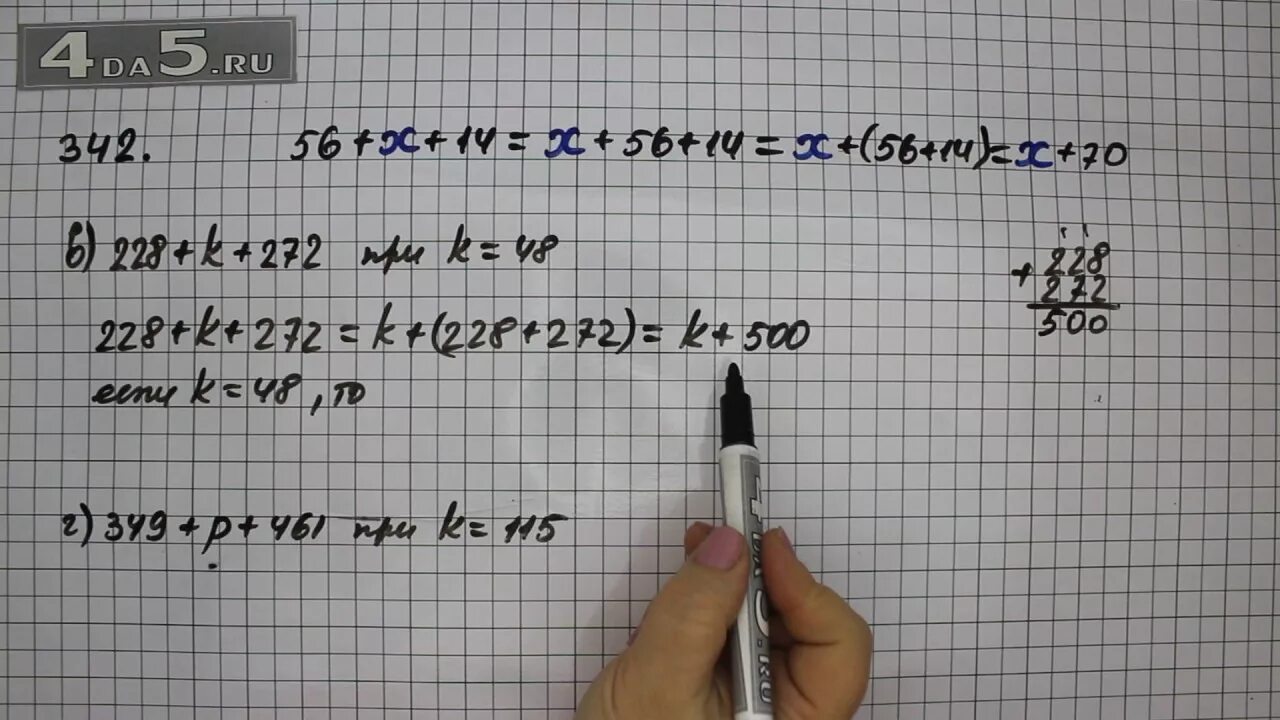 4DA5.RU
342. 56 + x + 14 = x + 56 + 14 = x + (56 + 14) = x + 70
в) 228 + k + 272 при k = 48
228 + k + 272 = k + (228 + 272) = k + 500
если k = 48, то
г) 349 + p + 461 при k = 115
1 1
+ 228
272
500